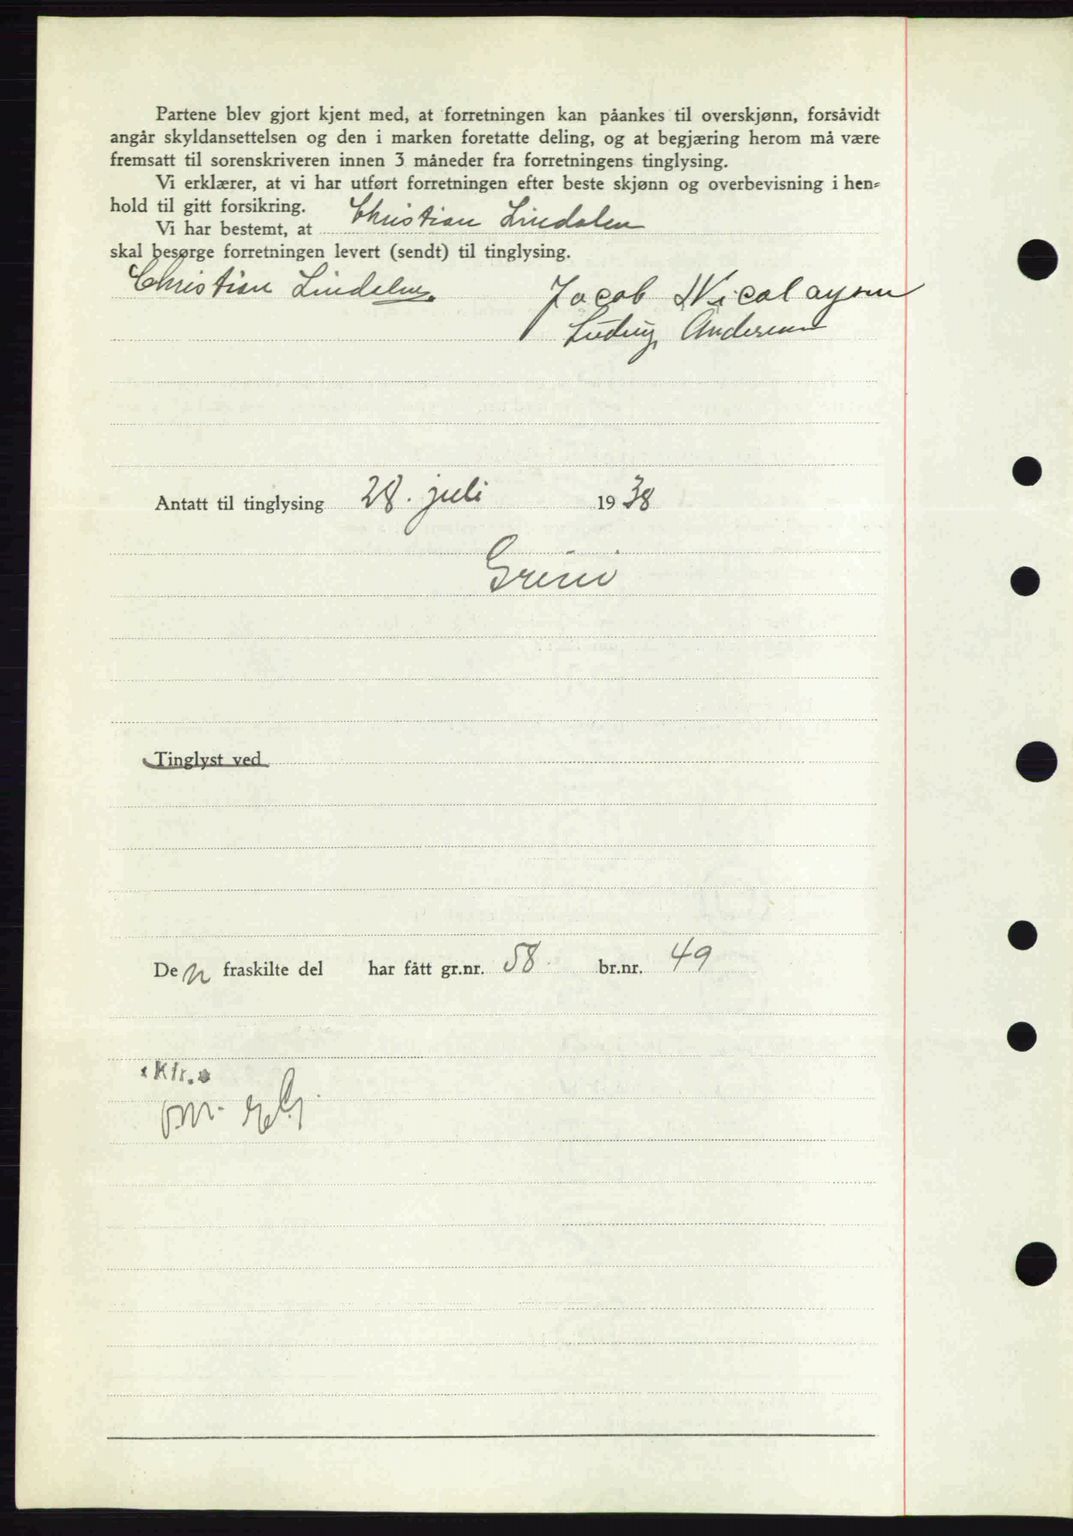 Partene blev gjort kjent med, at forretningen kan påankes til overskjønn, forsåvidt
angår skyldansettelsen og den i marken foretatte deling, og at begjæring herom må være
fremsatt til sorenskriveren innen 3 måneder fra forretningens tinglysing.
Vi erklærer, at vi har utført forretningen efter beste skjønn og overbevisning i hen-
hold til gitt forsikring.
Vi har bestemt, at Christian Lindalen
skal besørge forretningen levert (sendt) til tinglysing.
Christian Lindalen Jacob Nicolaysen
Ludvig Andersen
Antatt til tinglysing 28. juli 1938
Grini
Tinglyst ved
De n fraskilte del har fått gr.nr. 58 br.nr. 49
Kfr.